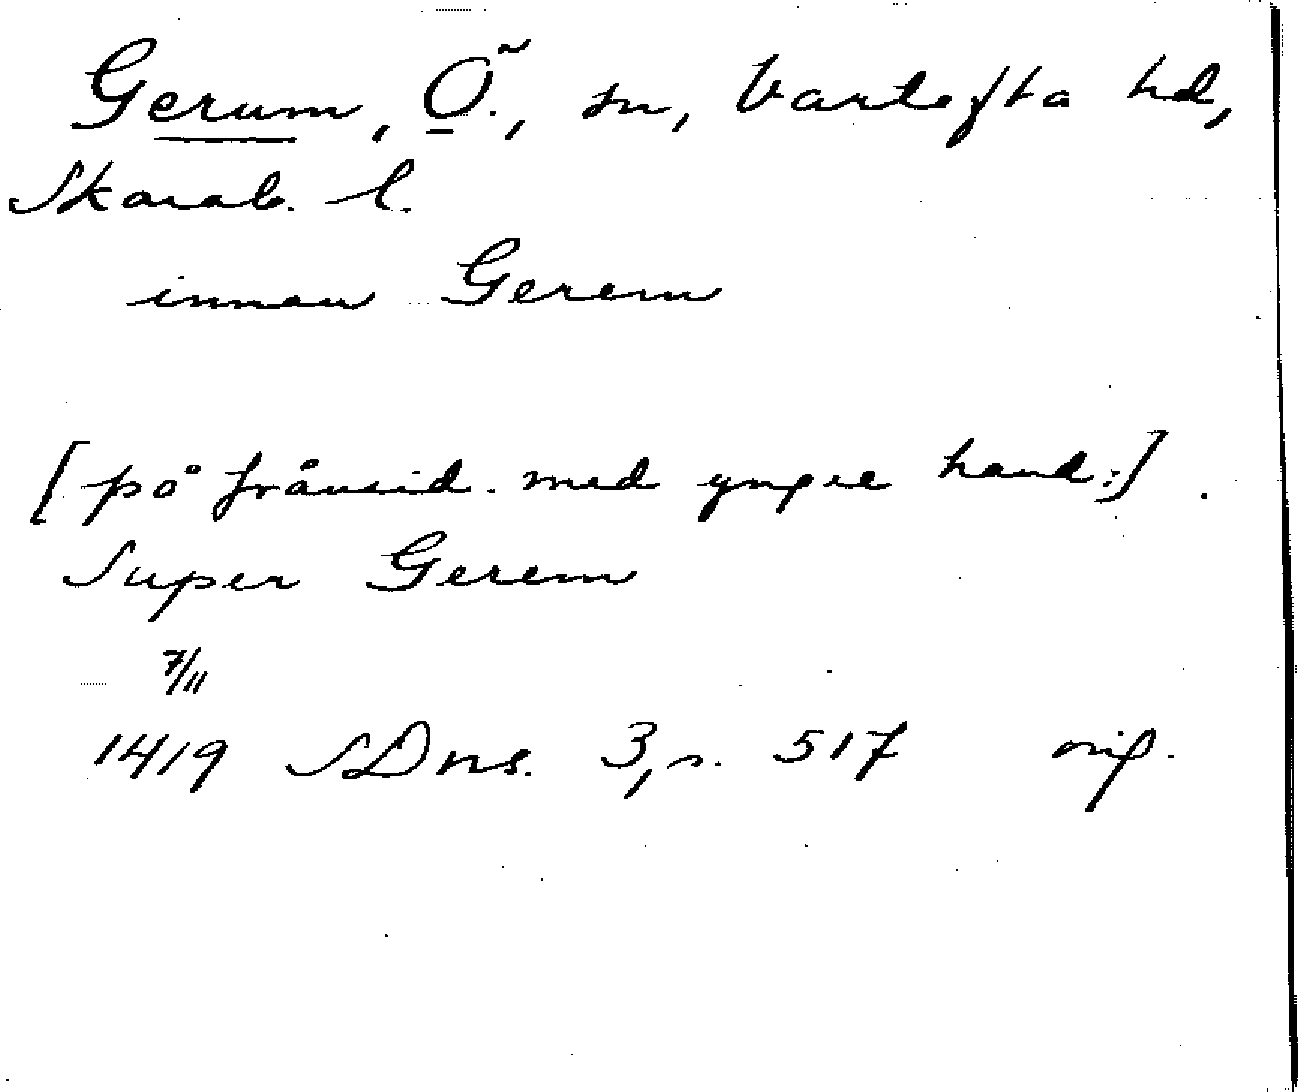 Gerum, Ö., sn, Vartofta hd,
Skarab. l.
innan Gerem
[på frånsid. med yngre hand:]
Super Gerem
7/11
1419 SDns. 3, s. 517 orig.